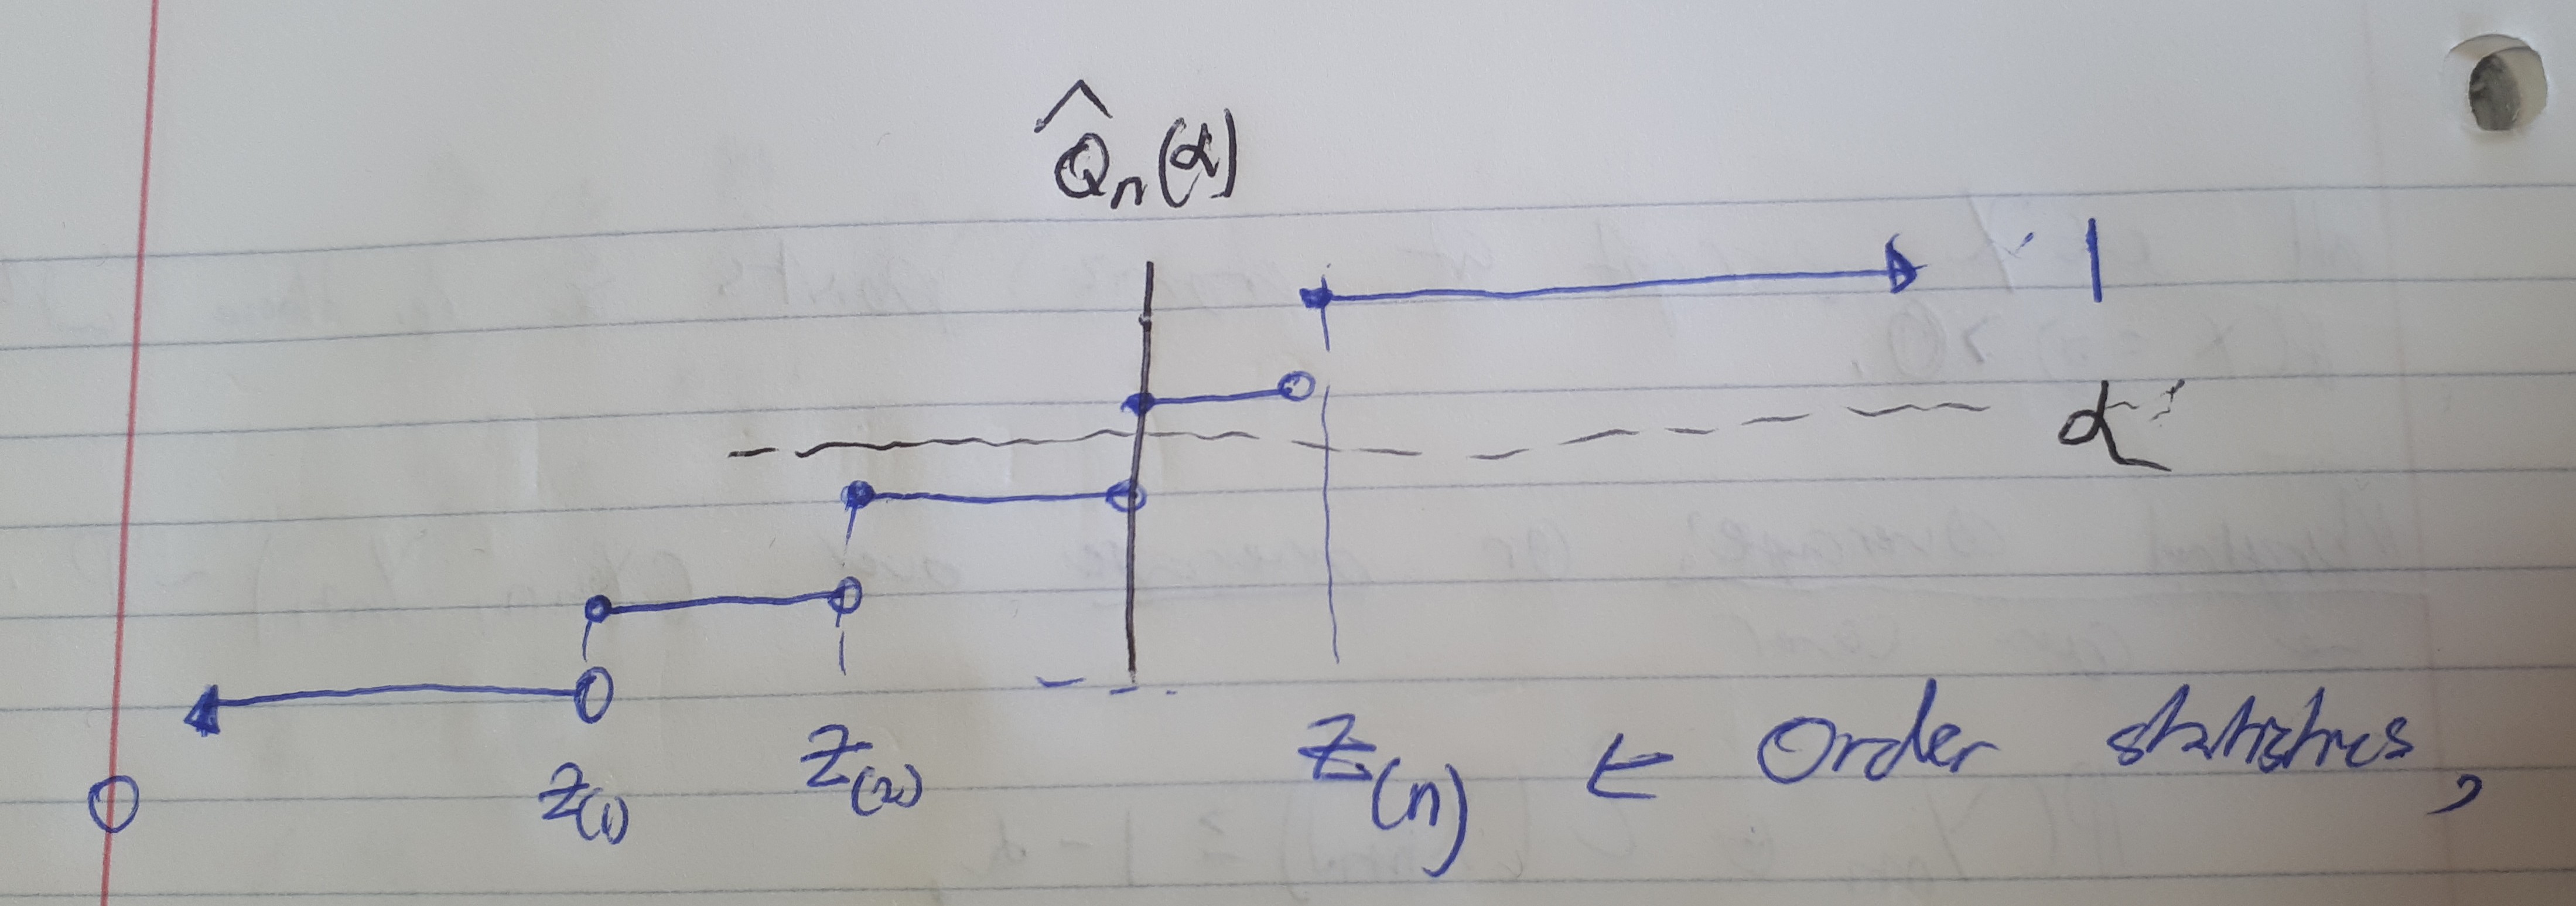 Q̂ₙ(α)
1
α
0 Z₍₁₎ Z₍₂₎ Z₍ₙ₎ ← Order statistics,